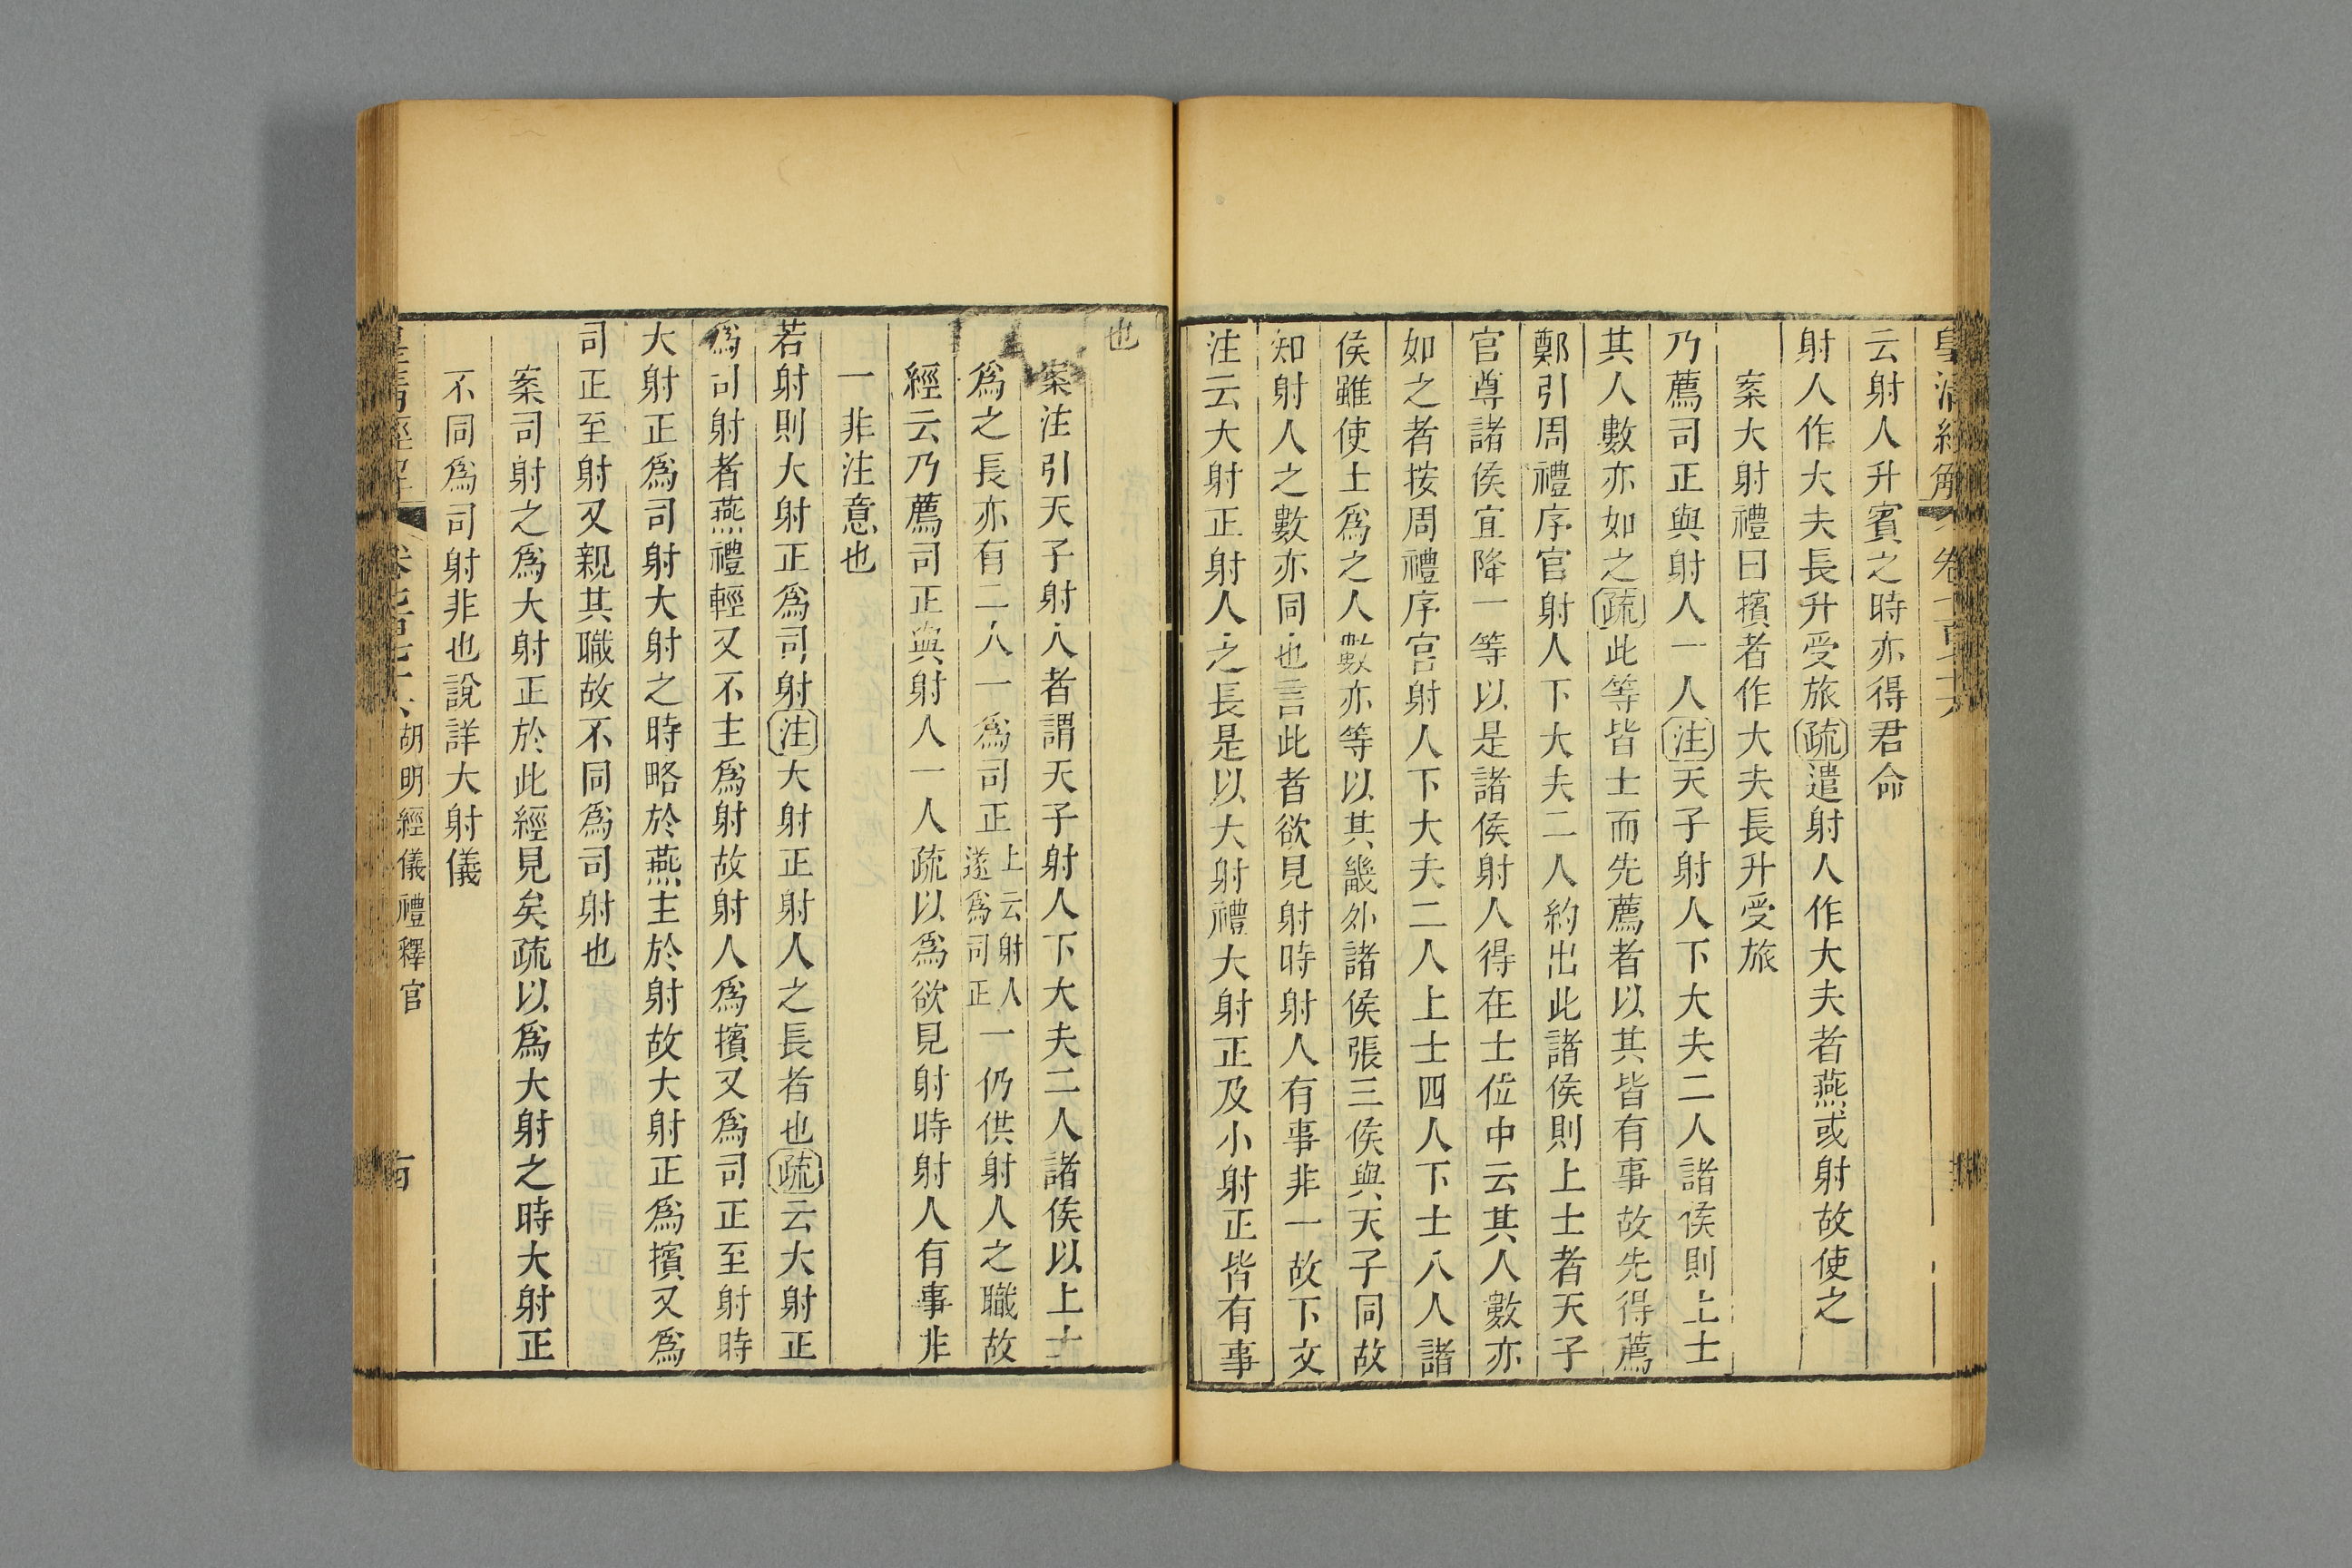 云射人升賓之時亦得君命
射人作大夫長升受旅疏遣射人作大夫者燕或射故使之
案大射禮曰擯者作大夫長升受旅
乃薦司正與射人一人注天子射人下大夫二人諸侯則上士
其人數亦如之疏此等皆士而先薦者以其皆有事故先得薦
鄭引周禮序官射人下大夫二人約出此諸侯則上士者天子
官尊諸侯宜降一等以是諸侯射人得在士位中云其人數亦
如之者按周禮序官射人下大夫二人上士四人下士八人諸
侯雖使士爲之人數亦等以其畿外諸侯張三侯與天子同故
知射人之數亦同也言此者欲見射時射人有事非一故下文
注云大射正射人之長是以大射禮大射正及小射正皆有事
也
案注引天子射人者謂天子射人下大夫二人諸侯以上士
爲之長亦有二人一爲司正上云射人遂爲司正一仍供射人之職故
經云乃薦司正與射人一人疏以爲欲見射時射人有事非
一非注意也
若射則大射正爲司射注大射正射人之長者也疏云大射正
爲司射者燕禮輕又不主爲射故射人爲擯又爲司正至射時
大射正爲司射大射之時略於燕主於射故大射正爲擯又爲
司正至射又親其職故不同爲司射也
案司射之爲大射正於此經見矣疏以爲大射之時大射正
不同爲司射非也說詳大射儀
胡明經儀禮釋官